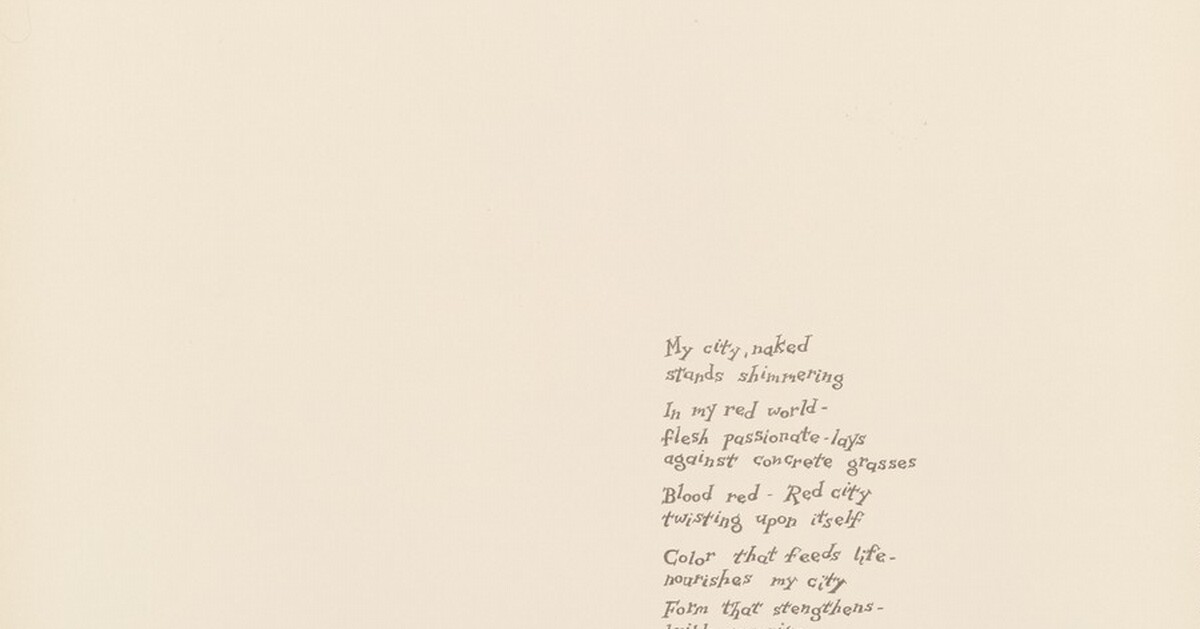 My city, naked
stands shimmering
In my red world-
flesh passionate-lays
against concrete grasses
Blood red - Red city
twisting upon itself
Color that feeds life-
nourishes my city
Form that stengthens-